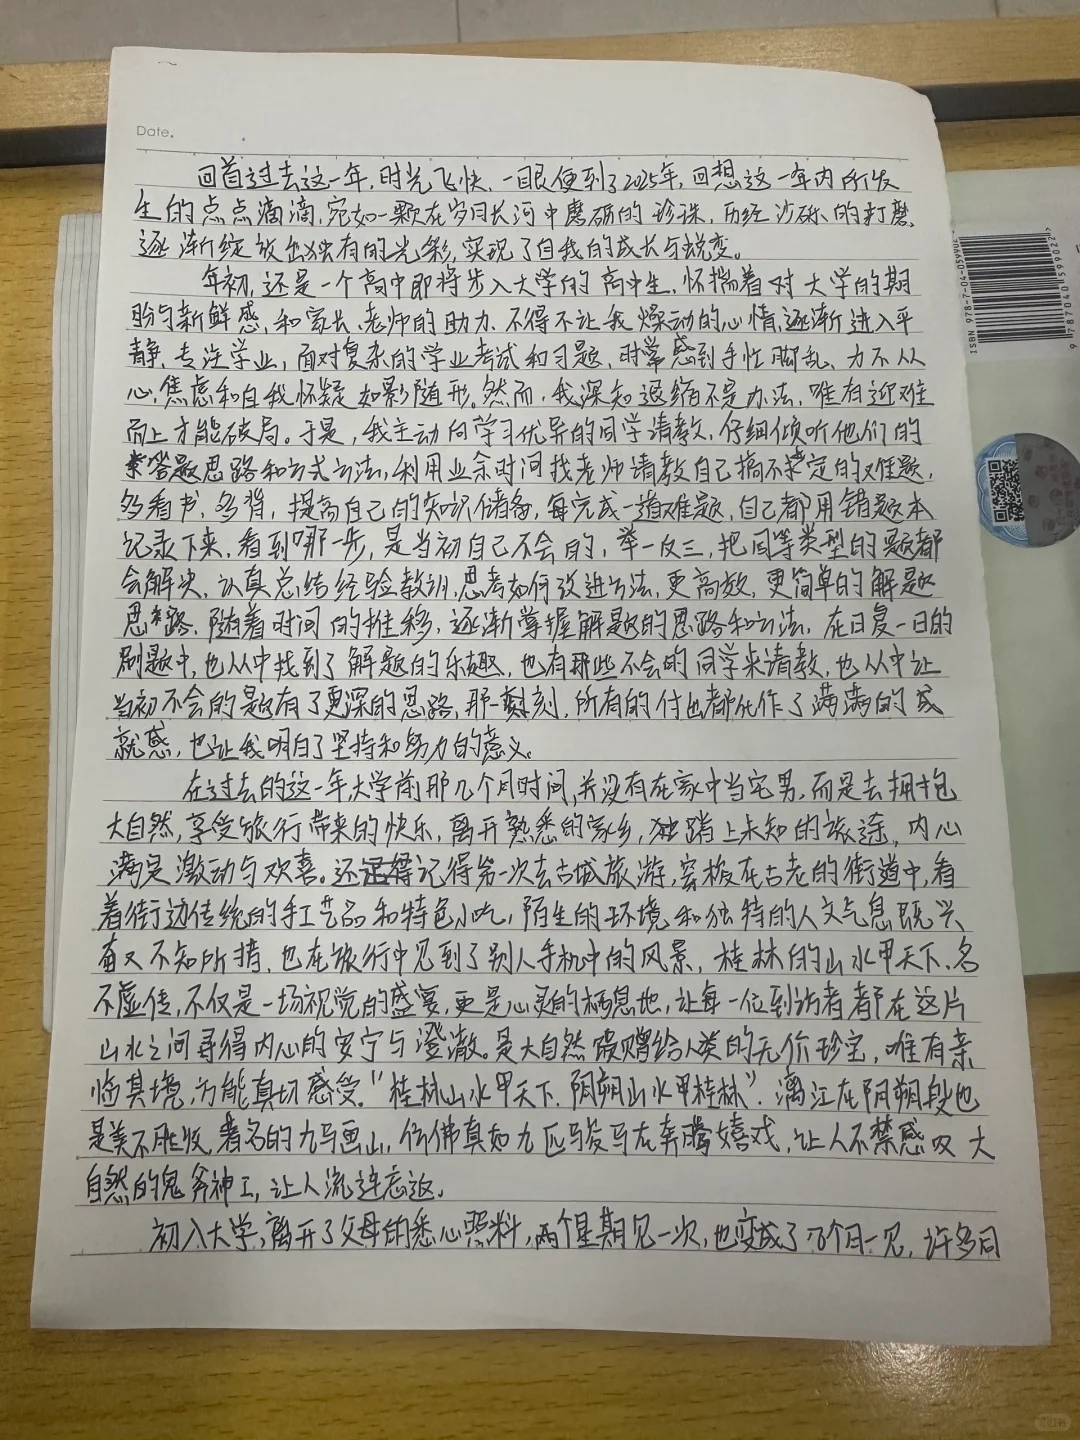 Date.
回首过去这一年,时光飞快,一眼便到了2025年,回想这一年内所发
生的点点滴滴,宛如一颗在岁月长河中磨砺的珍珠,历经沙砾的打磨,
逐渐绽放出独有的光彩,实现了自我的成长与蜕变。
年初,还是一个高中即将步入大学的高中生,怀揣着对大学的期
盼与新鲜感,和家长、老师的助力,不得不让我燥动的心情逐渐进入平
静,专注学业,面对复杂的学业考试和习题,时常感到手忙脚乱、力不从
心,焦虑和自我怀疑如影随形。然而,我深知退缩不是办法,唯有迎难
而上才能破局。于是,我主动向学习优异的同学请教,仔细倾听他们的
答题思路和方式方法,利用业余时间找老师请教自己搞不定的难题,
多看书,多背,提高自己的知识储备,每完成一道难题,自己都用错题本
记录下来,看到哪一步,是当初自己不会的,举一反三,把同等类型的题都
会解决,认真总结经验教训,思考如何改进方法,更高效,更简单的解题
思路,随着时间的推移,逐渐掌握解题的思路和方法,在日复一日的
刷题中,也从中找到了解题的乐趣,也有那些不会的同学来请教,也从中让
当初不会的题有了更深的思路,那一刻,所有的付出都化作了满满的成
就感,也让我明白了坚持和努力的意义。
在过去的这一年大学前那几个月时间,并没有在家中当宅男,而是去拥抱
大自然,享受旅行带来的快乐,离开熟悉的家乡,独踏上未知的旅途,内心
满是激动与欢喜。还记得第一次去古城旅游,穿梭在古老的街道中,看
着街边传统的手工艺品和特色小吃,陌生的环境和独特的人文气息既兴
奋又不知所措,也在旅行中见到了别人手机中的风景,桂林的山水甲天下,名
不虚传,不仅是一场视觉的盛宴,更是心灵的栖息地,让每一位到访者都在这片
山水之间寻得内心的安宁与澄澈。是大自然馈赠给人类的无价珍宝,唯有亲
临其境,方能真切感受"桂林山水甲天下,阳朔山水甲桂林",漓江在阳朔段也
是美不胜收,著名的九马画山,仿佛真如九匹骏马在奔腾嬉戏,让人不禁感叹大
自然的鬼斧神工,让人流连忘返。
初入大学,离开了父母的悉心照料,两个星期见一次,也变成了几个月一见,许多同
ISBN 978-7-04-05990
9 787040 599022
小红书